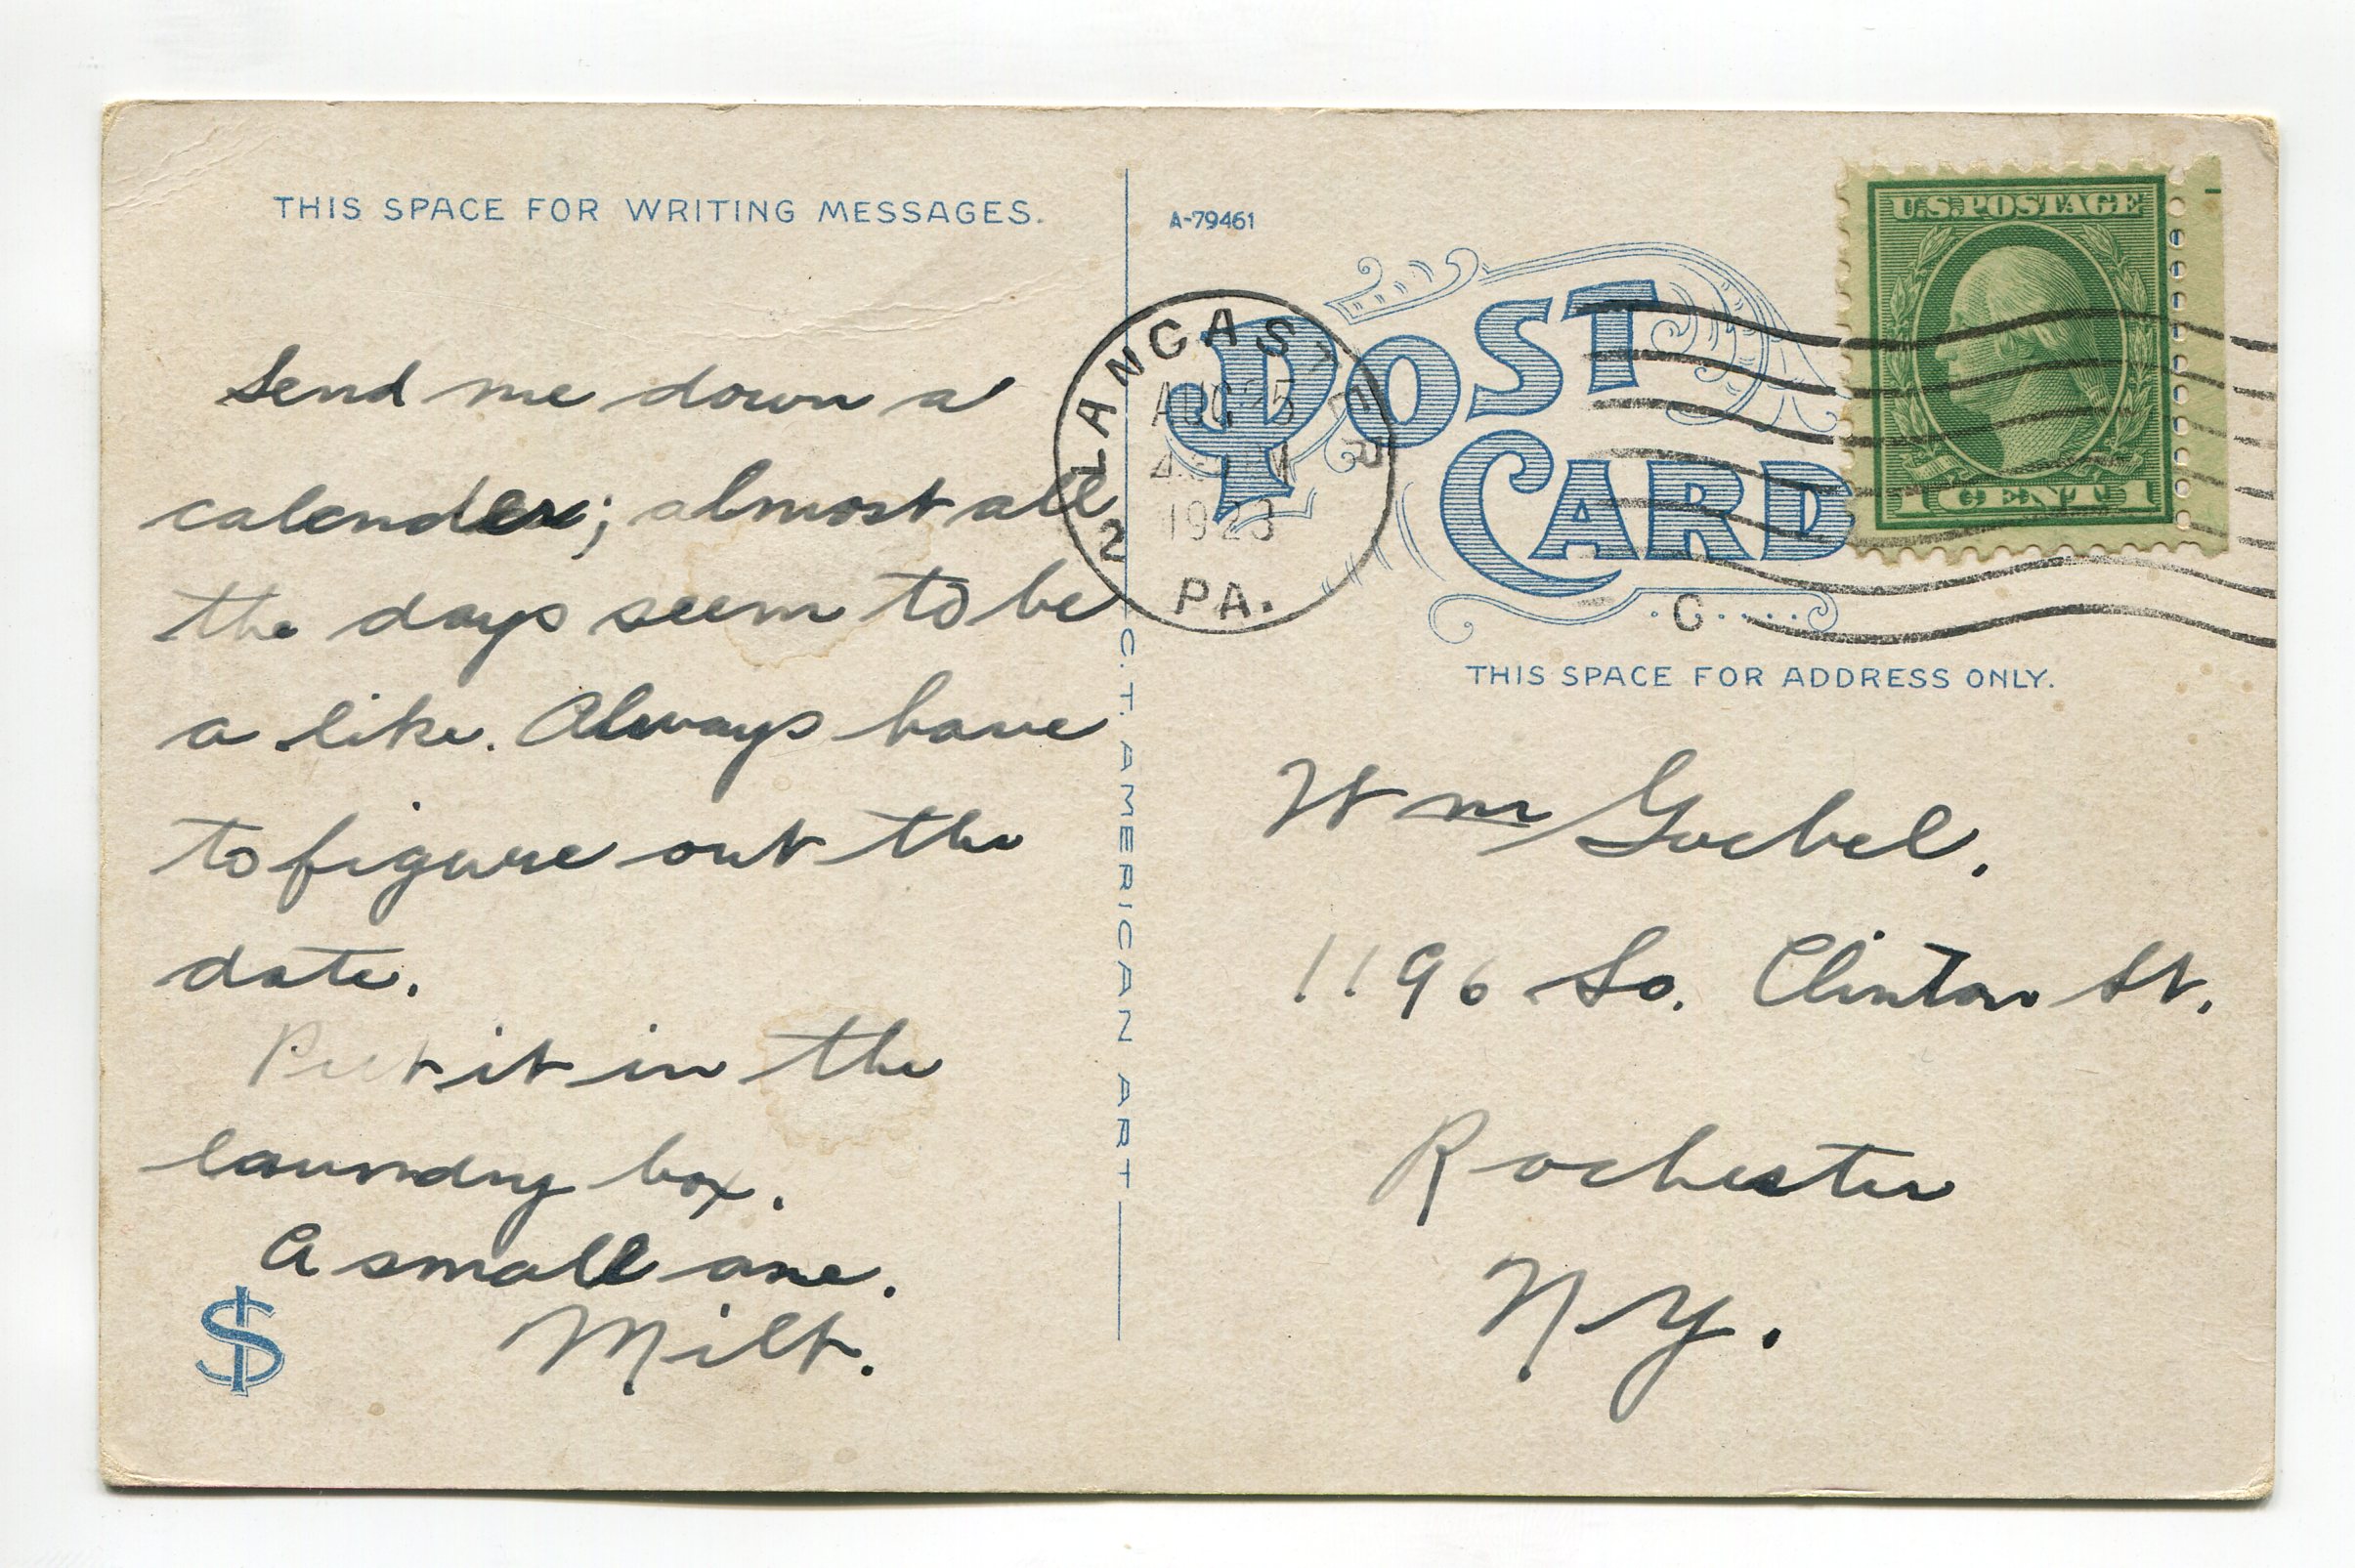 THIS SPACE FOR WRITING MESSAGES.
Send me down a
calender; almost all
the days seem to be
a like. Always have
to figure out the
date.
Put it in the
laundry box.
A small one.
Milt.
$
C. T. AMERICAN ART
A-79461
POST
CARD
LANCASTER
AUG 25
1923
2
PA.
U.S. POSTAGE
1 CENT 1
C
THIS SPACE FOR ADDRESS ONLY.
Wm Goebel.
1196 So. Clinton St.
Rochester
N Y.